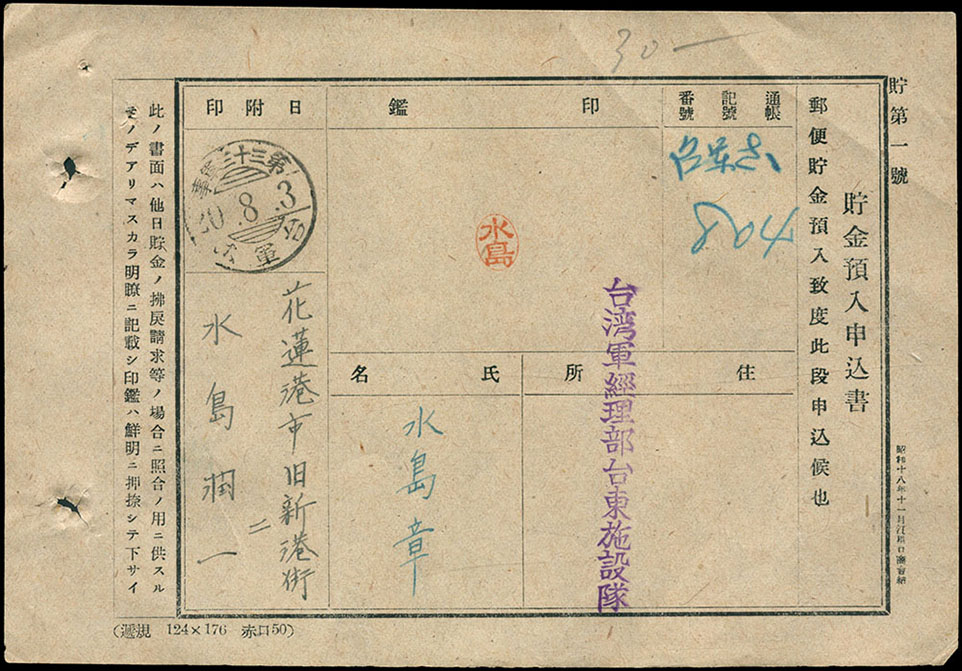 30—
貯第一號
貯金預入申込書
郵便貯金預入致度此段申込候也
通帳
記號
番號
印鑑
水島
住所
台湾軍經理部台東施設隊
氏名
水島章
日附印
20.8.3
花蓮港市旧新港街
二
水島潤一
此ノ書面ハ他日貯金ノ拂戻請求等ノ場合ニ照合ノ用ニ供スル
モノデアリマスカラ明瞭ニ記載シ印鑑ハ鮮明ニ押捺シテ下サイ
(遞規 124×176 赤口50)